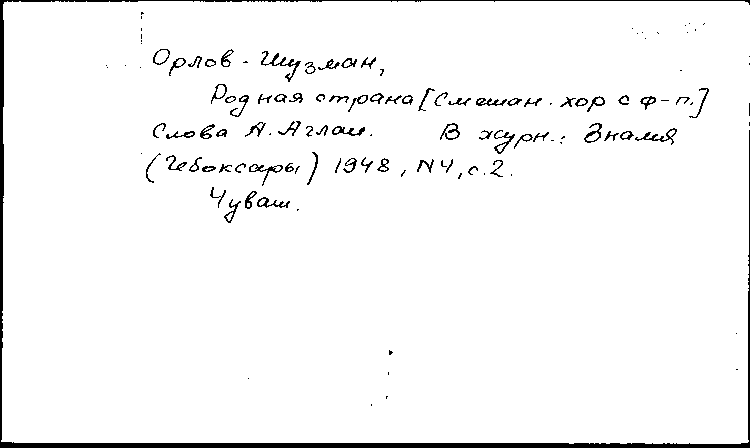 Орлов-Шузман,
Родная страна [Смешан. хор с ф-п.]
Слова А. Аглаш. В журн.: Знамя
(Чебоксары) 1948, N4, с. 2.
Чуваш.